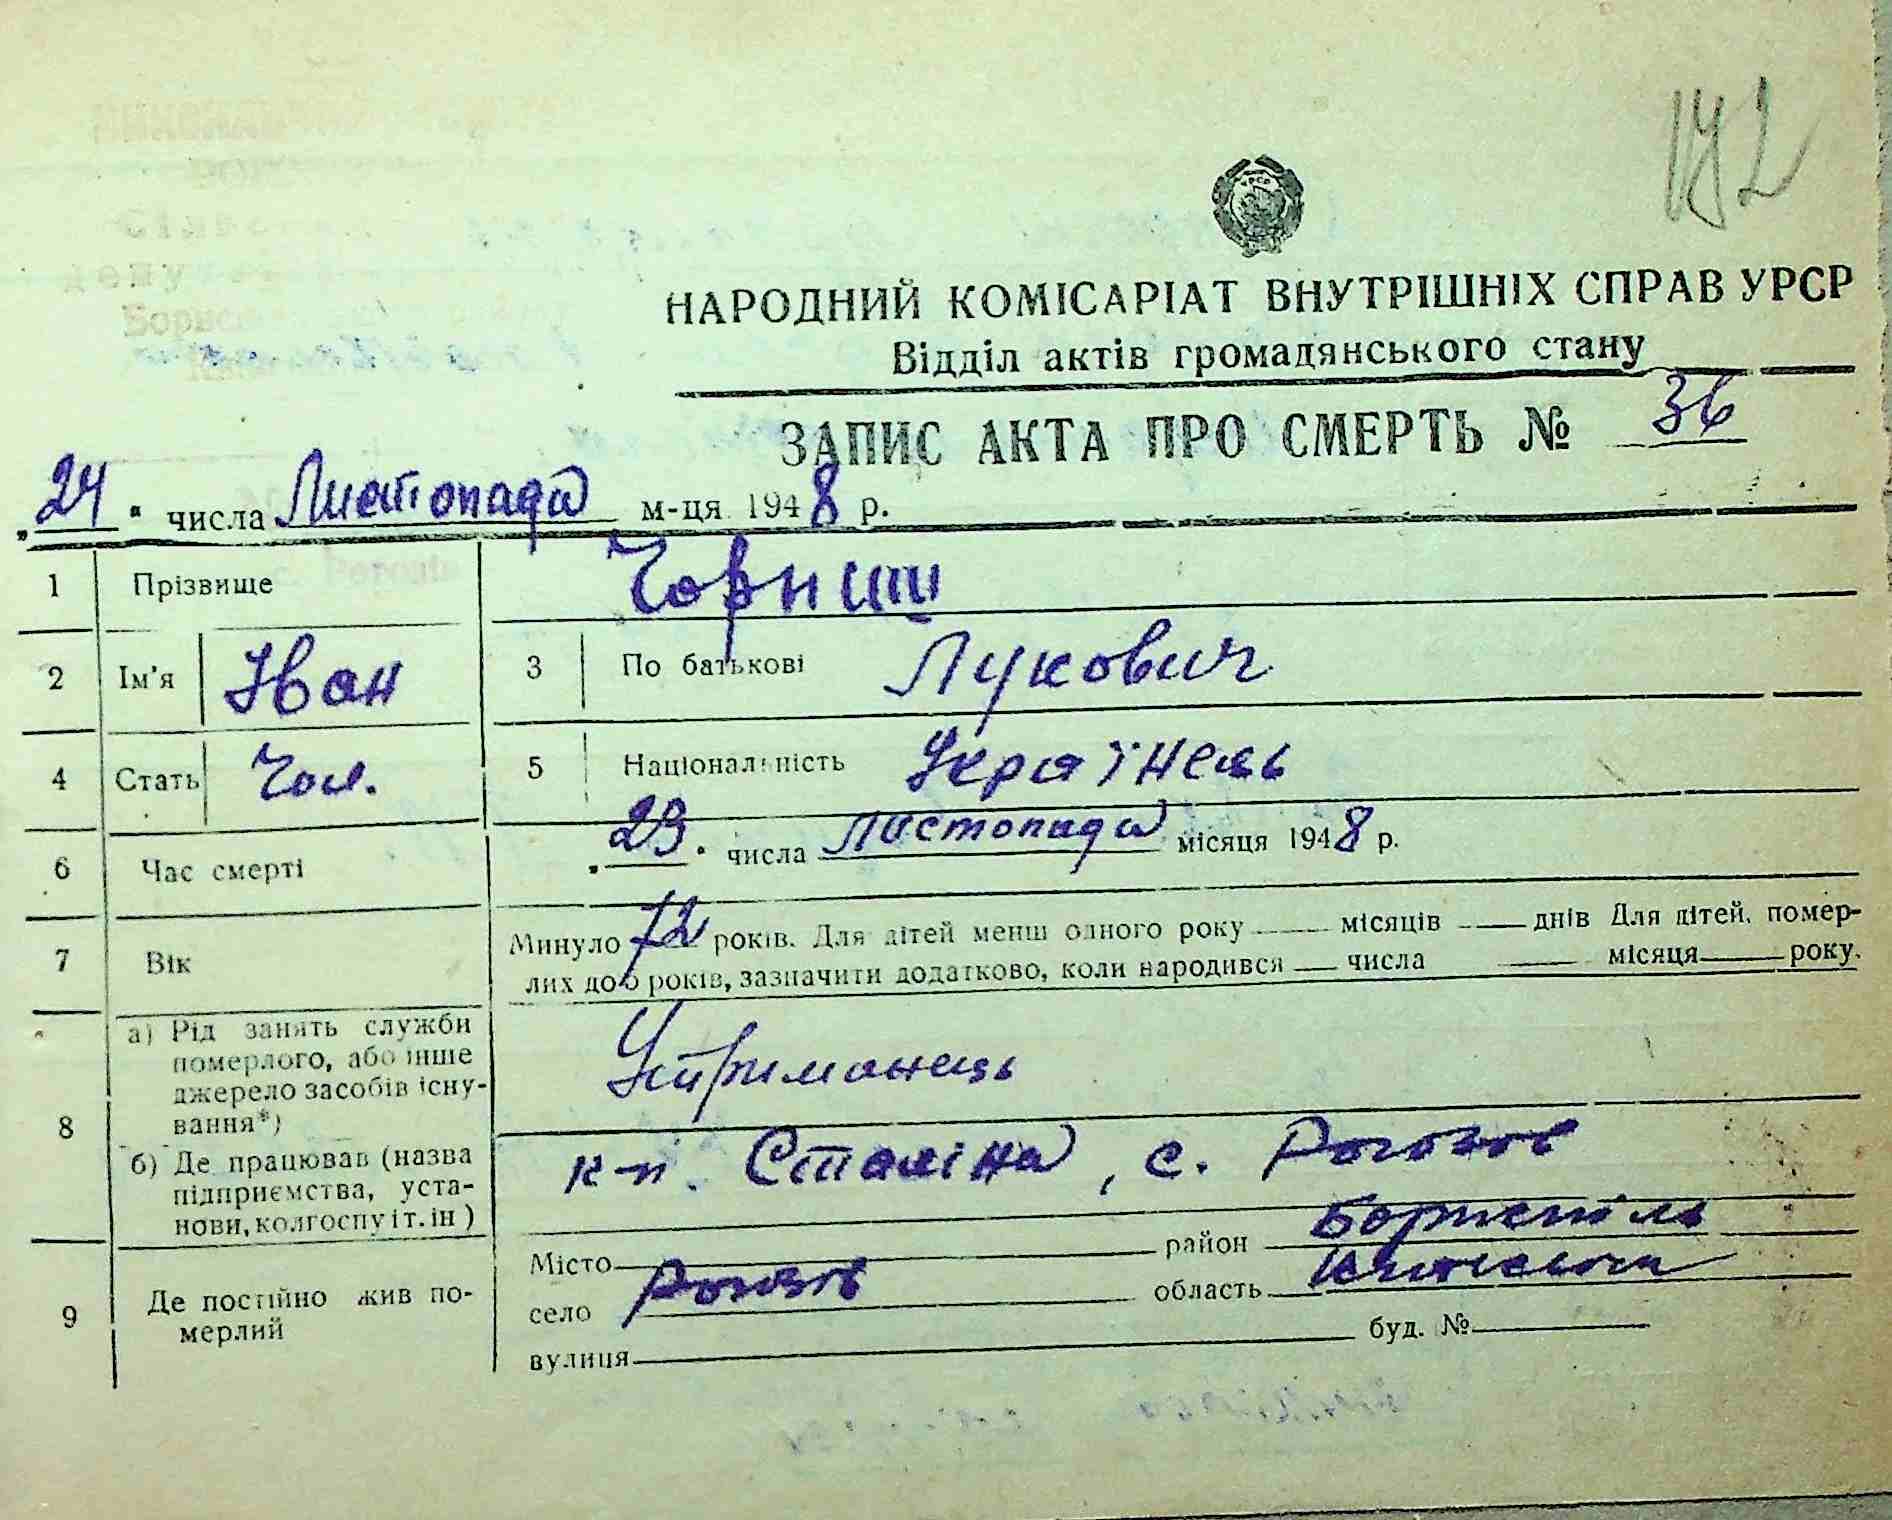 142
УРСР
НАРОДНИЙ КОМІСАРІАТ ВНУТРІШНІХ СПРАВ УРСР
Відділ актів громадянського стану
ЗАПИС АКТА ПРО СМЕРТЬ № 36
„24" числа Листопада м-ця 1948 р.
1 Прізвище Чорниш
2 Ім'я Іван 3 По батькові Лукович
4 Стать Чол. 5 Національність Українець
6 Час смерті „23" числа Листопада місяця 1948 р.
7 Вік Минуло 72 років. Для дітей менш одного року —— місяців —— днів Для дітей, помер-
лих до 5 років, зазначити додатково, коли народився —— числа —— місяця —— року.
8 а) Рід занять служби
померлого, або інше
джерело засобів існу-
вання*) Утриманець
б) Де працював (назва
підприємства, уста-
нови, колгоспу і т. ін) к-п. Сталіна, с. Рогозов
9 Де постійно жив по-
мерлий
Місто —— район Бориспіль
село Рогозів область Київська
вулиця —— буд. № ——